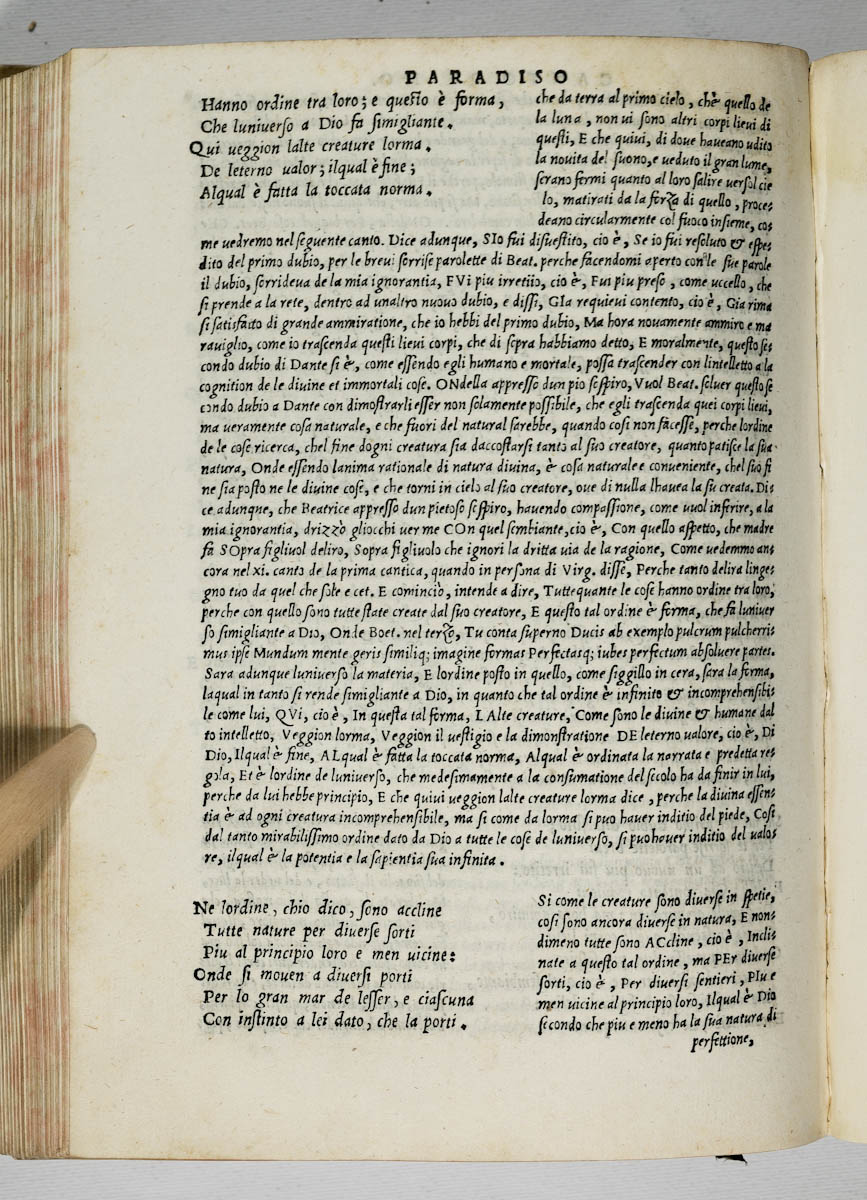 PARADISO
Hanno ordine tra loro; e questo è forma,
Che luniverso a Dio fa simigliante.
Qui veggion lalte creature lorma.
De leterno ualor; ilqual è fine;
Alqual è fatta la toccata norma.
che da terra al primo cielo, ch'è quello de
la luna, non ui sono altri corpi lieui di
questi, E che quiui, di doue haueano udito
la nouita del suono, e ueduto il gran lume,
serano fermi quanto al loro salire uersol cie
lo, matirati da la forza di quello, proce-
deano circularmente col fuoco insieme, co-
me uedremo nel seguente canto. Dice adunque, SIo fui disuestito, cio è, Se io fui resoluto & espe
dito del primo dubio, per le breui sorrise parolette di Beat. perche facendomi aperto con le sue parole
il dubio, sorrideua de la mia ignorantia, FVi piu irretito, cio è, Fui piu preso, come uccello, che
si prende a la rete, dentro ad unaltro nuouo dubio, e dissi, GIa requieui contento, cio è, Gia rima
si satisfatto di grande ammiratione, che io hebbi del primo dubio, Ma hora nouamente ammiro e ma
rauiglio, come io trascenda questi lieui corpi, che di sopra habbiamo detto, E moralmente, questo se-
condo dubio di Dante si è, come essendo egli humano e mortale, possa trascender con lintelletto a la
cognition de le diuine et immortali cose. ONdella appresso dun pio sospiro, Vuol Beat. soluer questo se
condo dubio a Dante con dimostrarli esser non solamente possibile, che egli trascenda quei corpi lieui,
ma ueramente cosa naturale, e che fuori del natural sarebbe, quando cosi non facesse, perche lordine
de le cose ricerca, chel fine dogni creatura sia daccostarsi tanto al suo creatore, quanto patisce la sua
natura, Onde essendo lanima rationale di natura diuina, è cosa naturale e conueniente, chel suo fi
ne sia posto ne le diuine cose, e che torni in cielo al suo creatore, oue di nulla lhauea la su creata. Di-
ce adunque, che Beatrice appresso dun pietoso sospiro, hauendo compassione, come uuol inferire, a la
mia ignorantia, drizzò gliocchi uer me COn quel sembiante, cio è, Con quello aspetto, che madre
fa SOpra figliuol deliro, Sopra figliuolo che ignori la dritta uia de la ragione, Come uedemmo an-
cora nel xi. canto de la prima cantica, quando in persona di Virg. disse, Perche tanto delira linge-
gno tuo da quel che sole e cet. E cominciò, intende a dire, Tuttequante le cose hanno ordine tra loro,
perche con quello sono tutte state create dal suo creatore, E questo tal ordine è forma, che fa luniuer
so simigliante a Dio, Onde Boet. nel terzo, Tu conta superno Ducis ab exemplo pulcrum pulcherri-
mus ipse Mundum mente geris similiq; imagine formas Perfectasq; iubes perfectum absoluere partes.
Sara adunque luniuerso la materia, E lordine posto in quello, come siggillo in cera, sara la forma,
laqual in tanto si rende simigliante a Dio, in quanto che tal ordine è infinito & incomprehensibi-
le come lui, QVi, cio è, In questa tal forma, LAlte creature, Come sono le diuine & humane dal
to intelletto, Veggion lorma, Veggion il uestigio e la dimonstratione DE leterno ualore, cio è, Di
Dio, Ilqual è fine, ALqual è fatta la toccata norma, Alqual è ordinata la narrata e predetta re-
gola, Et è lordine de luniuerso, che medesimamente a la consumatione del secolo ha da finir in lui,
perche da lui hebbe principio, E che quiui ueggion lalte creature lorma dice, perche la diuina essen-
tia è ad ogni creatura incomprehensibile, ma si come da lorma si puo hauer inditio del piede, Cosi
dal tanto mirabilissimo ordine dato da Dio a tutte le cose de luniuerso, si puo hauer inditio del ualo-
re, ilqual è la potentia e la sapientia sua infinita.
Ne lordine, chio dico, sono accline
Tutte nature per diuerse sorti
Piu al principio loro e men uicine:
Onde si mouen a diuersi porti
Per lo gran mar de lesser, e ciascuna
Con instinto a lei dato, che la porti.
Si come le creature sono diuerse in spetie,
cosi sono ancora diuerse in natura, E non-
dimeno tutte sono ACcline, cio è, Incli-
nate a questo tal ordine, ma PEr diuerse
sorti, cio è, Per diuersi sentieri, PIu e
men uicine al principio loro, Ilqual è Dio
secondo che piu e meno ha la sua natura di
perfettione,